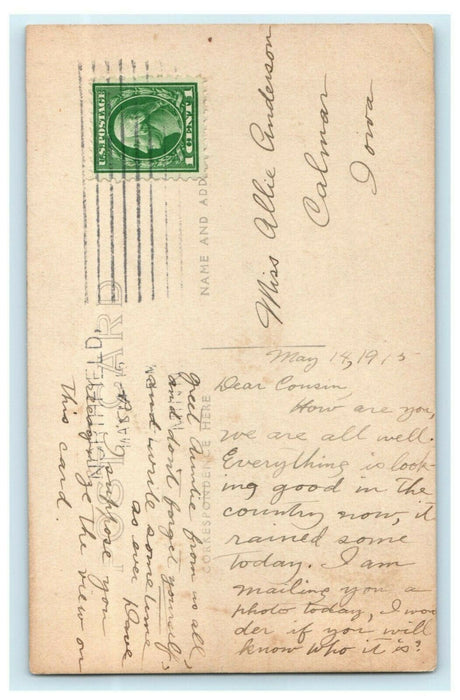 U.S. POSTAGE
1 CENT 1
POST CARD
NAME AND ADD
CORRESPONDENCE HERE
Miss Allie Anderson
Calmar
Iowa
May 14, 1915
Dear Cousin,
How are you,
we are all well.
Everything is look-
ing good in the
country now, it
rained some
today. I am
mailing you a
photo today, I won
der if you will
know who it is?
Greet Auntie from us all,
and don't forget yourself,
and write sometime
as ever Dave
suppose you
the view on
This card.